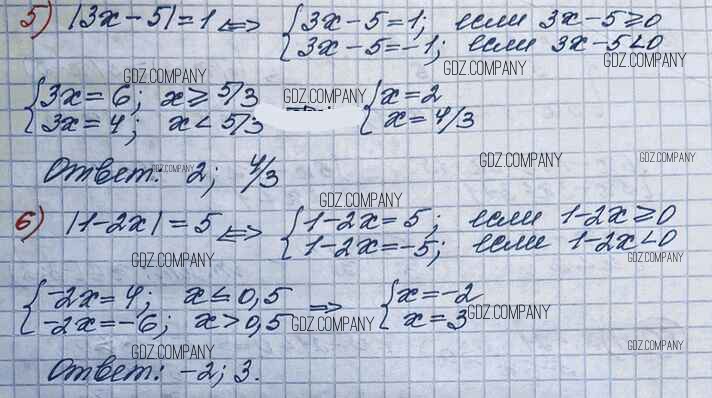 5) |3x-5|=1 <=> { 3x-5=1; если 3x-5≥0
3x-5=-1; если 3x-5<0
GDZ.COMPANY GDZ.COMPANY GDZ.COMPANY
{ 3x=6; x≥5/3 GDZ.COMPANY { x=2
3x=4; x<5/3 x=4/3
Ответ: GDZ.COMPANY 2; 4/3 GDZ.COMPANY GDZ.COMPANY
GDZ.COMPANY
6) |1-2x|=5 <=> { 1-2x=5; если 1-2x≥0
1-2x=-5; если 1-2x<0
GDZ.COMPANY GDZ.COMPANY
{ -2x=4; x≤0,5 => { x=-2
-2x=-6; x>0,5 GDZ.COMPANY x=3 GDZ.COMPANY
GDZ.COMPANY GDZ.COMPANY
Ответ: -2; 3.